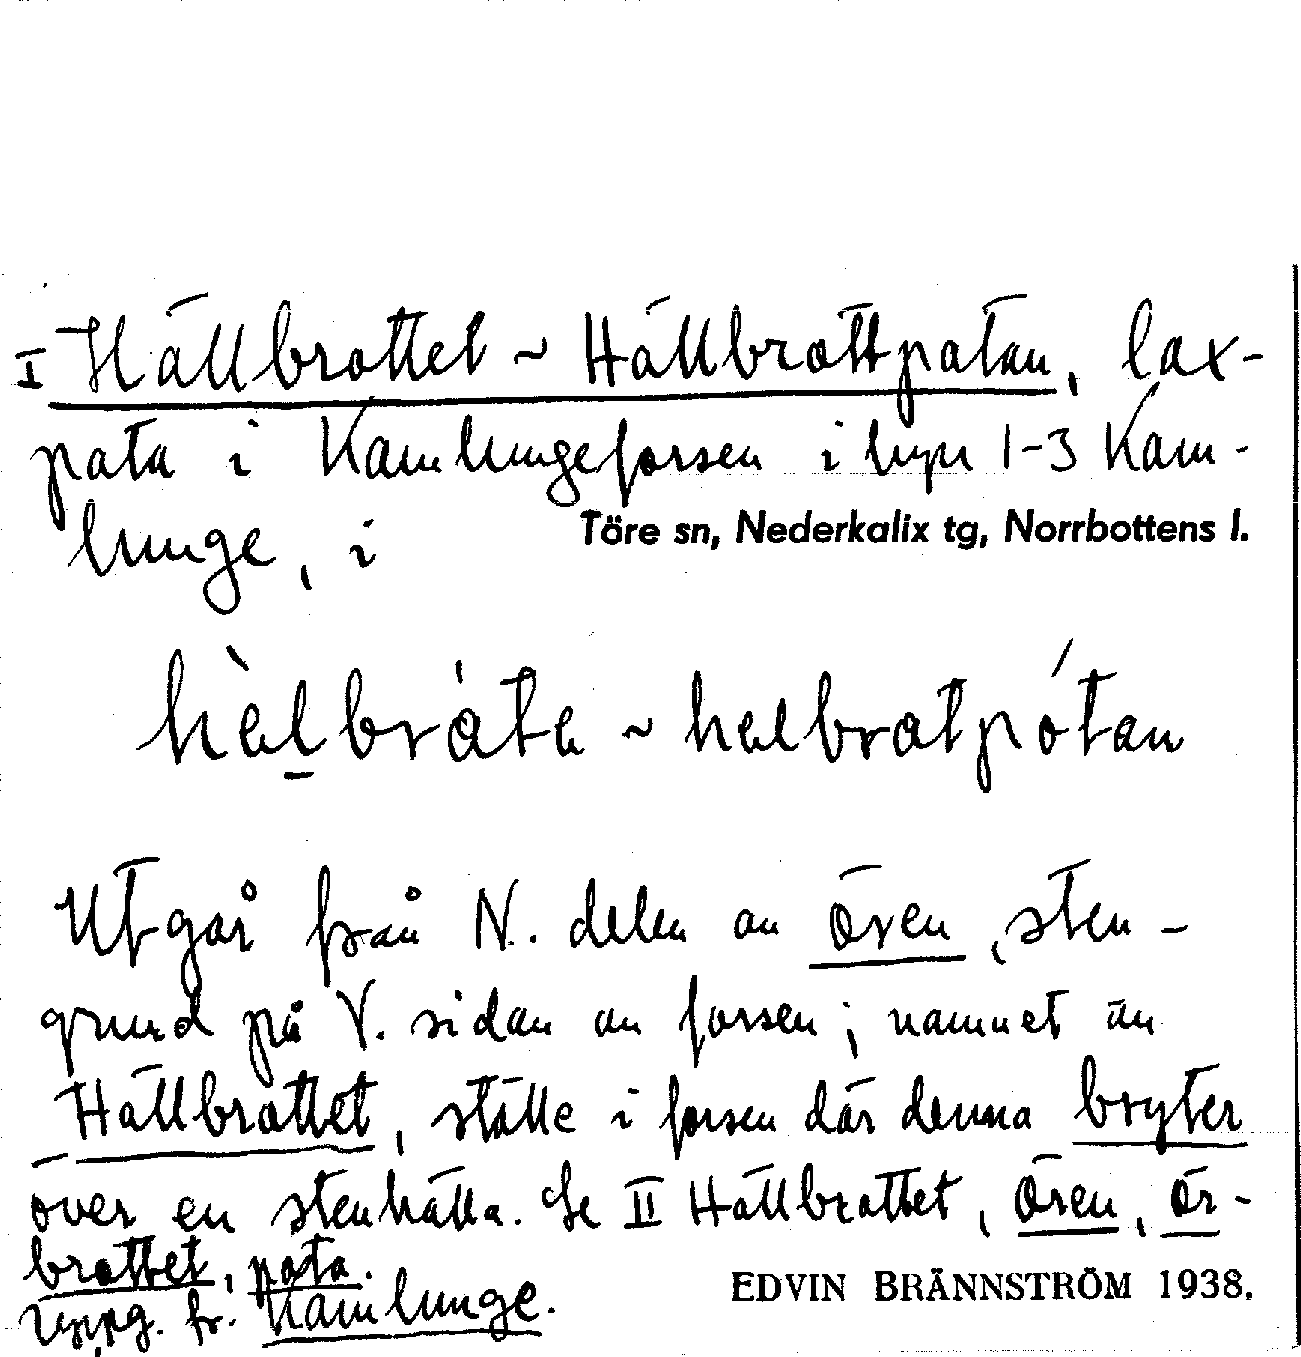 I Hällbrottet ~ Hällbrottpatan, lax-
pata i Kamlungeforsen i byn 1-3 Kam-
lunge, i Töre sn, Nederkalix tg, Norrbottens l.
hὲlbråta ~ hælbratpǻtan
Utgår från N. delen av Ören, sten-
grund på V. sidan av forsen; namnet av
Hällbrottet, ställe i forsen där denna bryter
över en stenhälla. Se II Hällbrottet, Ören, Ör-
brottet, pata.
Uppg. fr. Kamlunge.
EDVIN BRÄNNSTRÖM 1938.